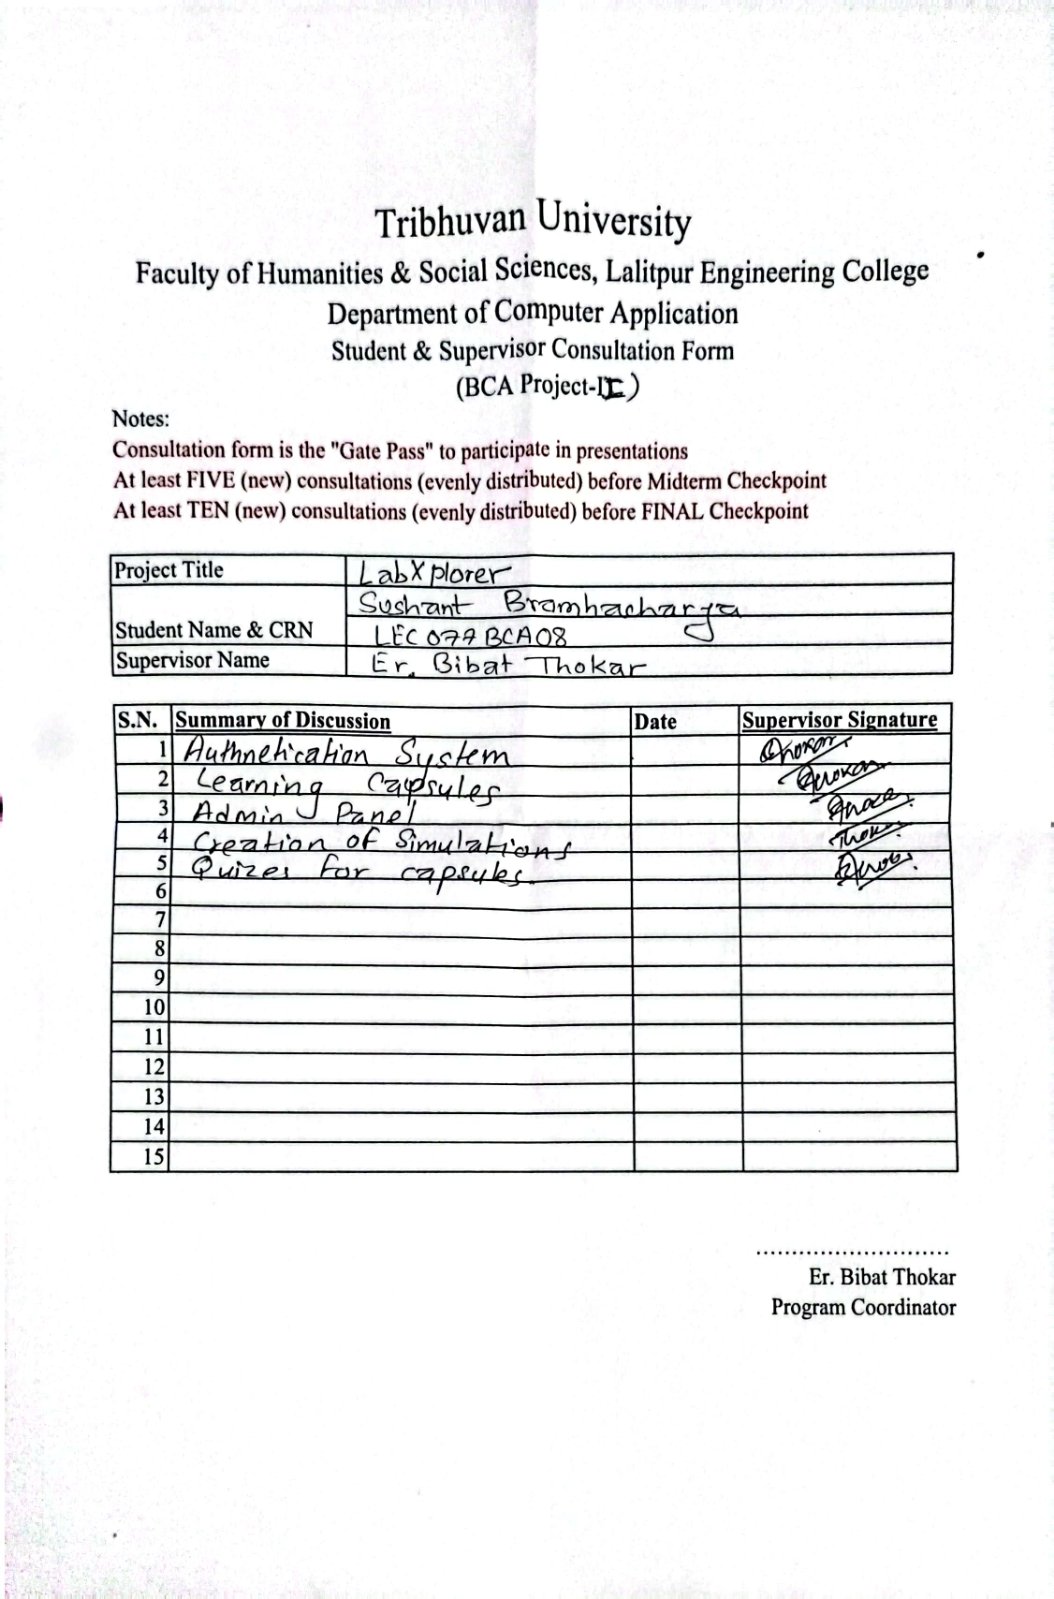 Tribhuvan University
Faculty of Humanities & Social Sciences, Lalitpur Engineering College
Department of Computer Application
Student & Supervisor Consultation Form
(BCA Project-II)
Notes:
Consultation form is the "Gate Pass" to participate in presentations
At least FIVE (new) consultations (evenly distributed) before Midterm Checkpoint
At least TEN (new) consultations (evenly distributed) before FINAL Checkpoint
Project Title LabXplorer
Sushant Bramhacharya
Student Name & CRN LEC077BCA08
Supervisor Name Er. Bibat Thokar
S.N. Summary of Discussion Date Supervisor Signature
1 Authnetication System Thokar
2 Learning Capsules Thokar
3 Admin Panel
4 Creation of Simulations
5 Quizes for capsules.
6
7
8
9
10
11
12
13
14
15
Er. Bibat Thokar
Program Coordinator